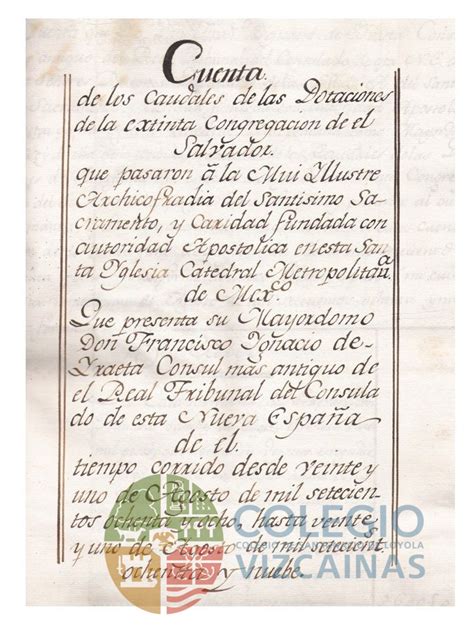 Cuenta.
de los Caudales de las Dotaciones
de la extinta Congregacion de el
Salvador.
que pasaron â la Mui Yllustre
Archicofradia del Santisimo Sa-
cramento, y Caridad fundada con
autoridad Apostolica en esta San
ta Yglesia Catedral Metropolitana
de Mexco
Que presenta su Mayordomo
Don Francisco Ygnacio de
Yraeta Consul mas antiguo de
el Real Tribunal del Consula
do de esta Nueva España
de el
tiempo corrido desde veinte y
uno de Agosto de mil setecien
tos ochenta y ocho, hasta veinte
y uno de Agosto de mil setecient
ochentta y nuebe.
COLEGIO
LOYOLA
VIZCAINAS